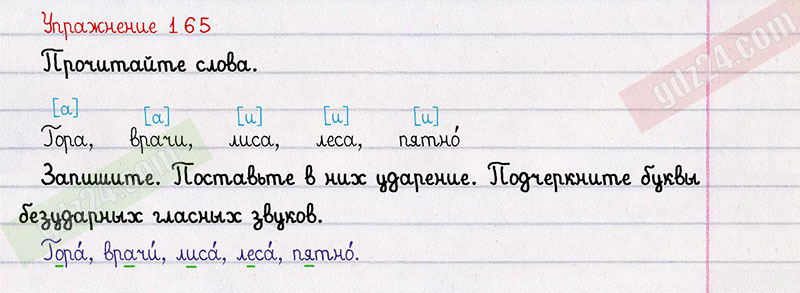 Упражнение 165
Прочитайте слова.
[а] [а] [и] [и] [и]
Гора, врачи, лиса, леса, пятно́
Запишите. Поставьте в них ударение. Подчеркните буквы
безударных гласных звуков.
Гора́, врачи́, лиса́, леса́, пятно́.
gdz24.com
gdz24.com